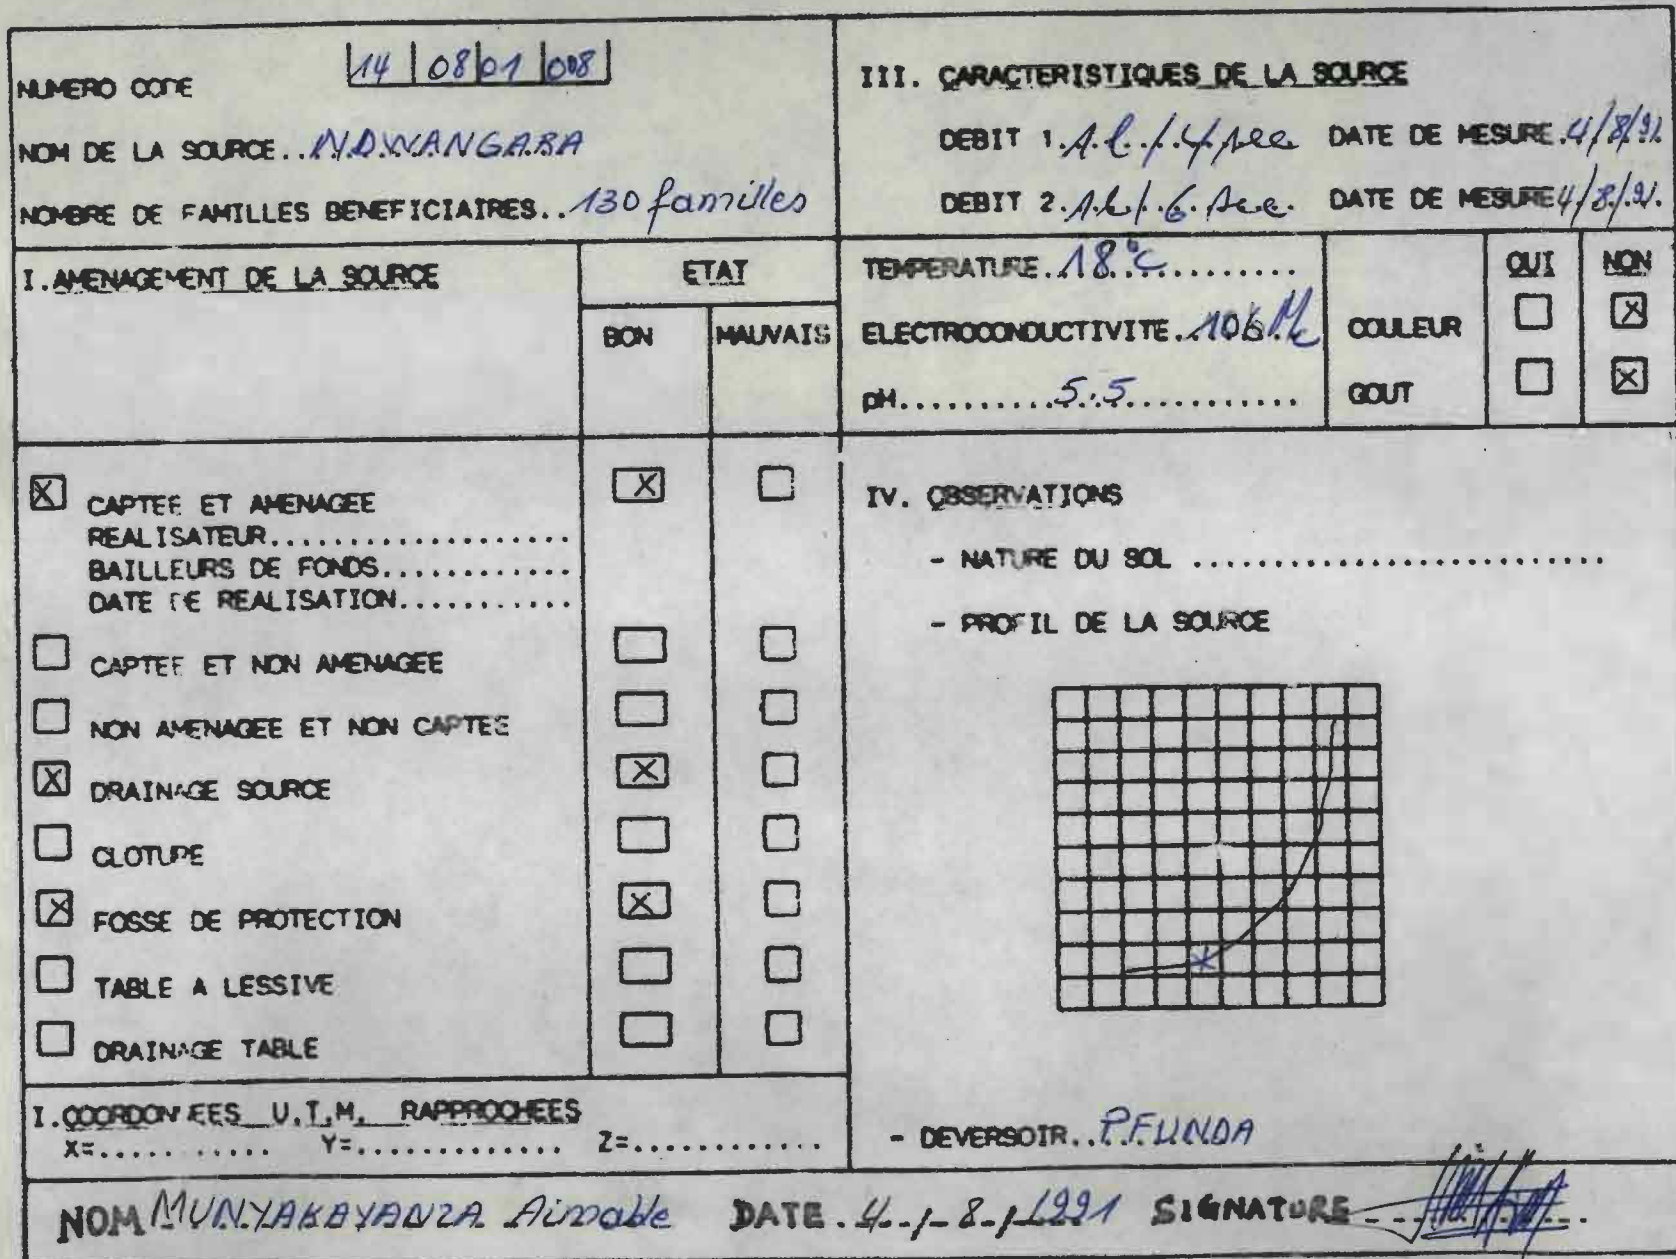 NUMERO CODE 14 | 08 | 01 | 008
NOM DE LA SOURCE..NDWANGABA
NOMBRE DE FAMILLES BENEFICIAIRES..130 familles
I. AMENAGEMENT DE LA SOURCE
ETAT
BON MAUVAIS
X CAPTEE ET AMENAGEE X
REALISATEUR...................
BAILLEURS DE FONDS.............
DATE DE REALISATION...........
CAPTEE ET NON AMENAGEE
NON AMENAGEE ET NON CAPTEE
X DRAINAGE SOURCE X
CLOTURE
X FOSSE DE PROTECTION X
TABLE A LESSIVE
DRAINAGE TABLE
I. COORDONNEES U.T.M. RAPPROCHEES
X=........... Y=............. Z=............
III. CARACTERISTIQUES DE LA SOURCE
DEBIT 1.1.l./.4/sec DATE DE MESURE.4/8/91
DEBIT 2.1.l/.6.sec. DATE DE MESURE 4/8/.91.
TEMPERATURE.18.°C.........
ELECTROCONDUCTIVITE..106.
pH..........5.5............
OUI NON
COULEUR X
GOUT X
IV. OBSERVATIONS
- NATURE DU SOL ..........................
- PROFIL DE LA SOURCE
- DEVERSOIR..P.FUNDA
NOM MUNYAKAYANZA Aimable DATE.4../-8-/-1991 SIGNATURE